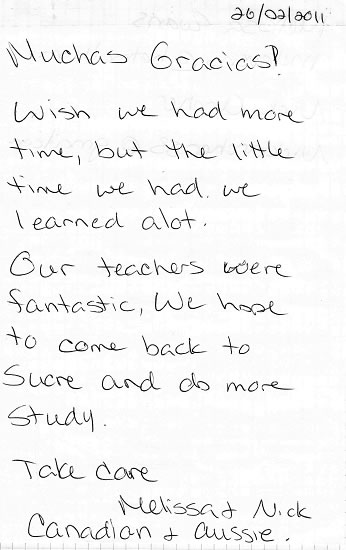 26/02/2011
Muchas Gracias!
Wish we had more
time, but the little
time we had. we
learned alot.
Our teachers were
fantastic, We hope
to come back to
Sucre and do more
study.
Take care
Melissa + Nick
Canadian + Aussie.